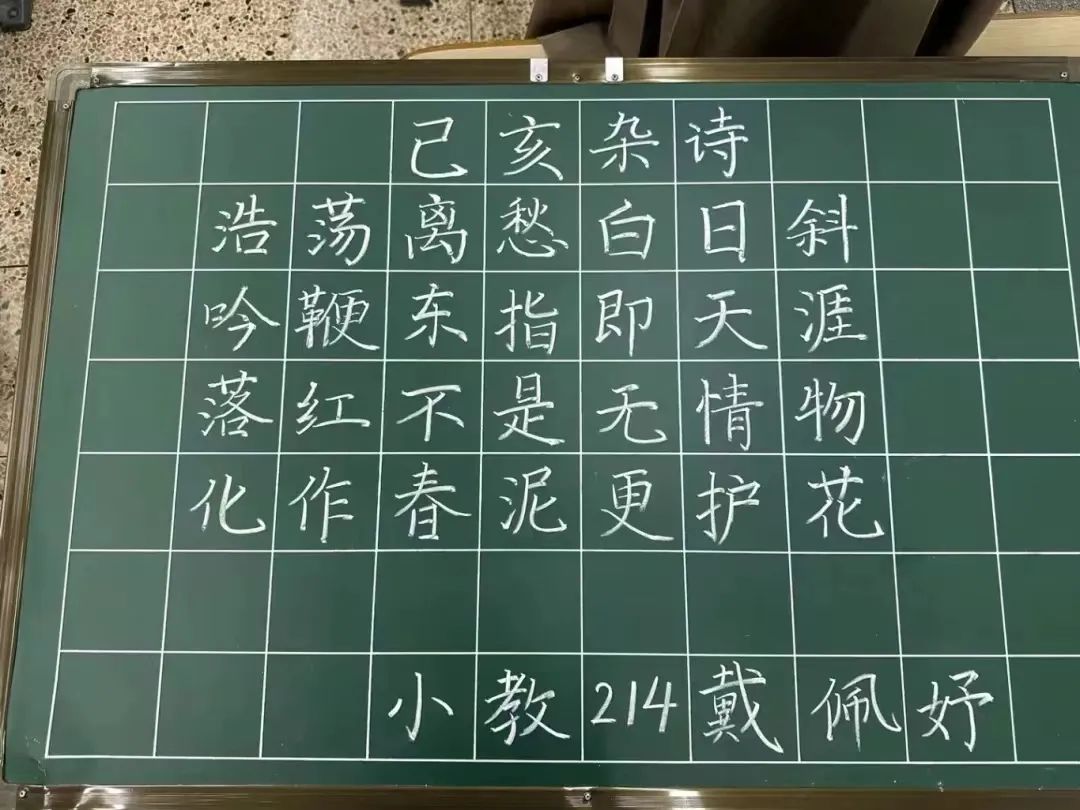 己亥杂诗
浩荡离愁白日斜
吟鞭东指即天涯
落红不是无情物
化作春泥更护花
小教214戴佩妤